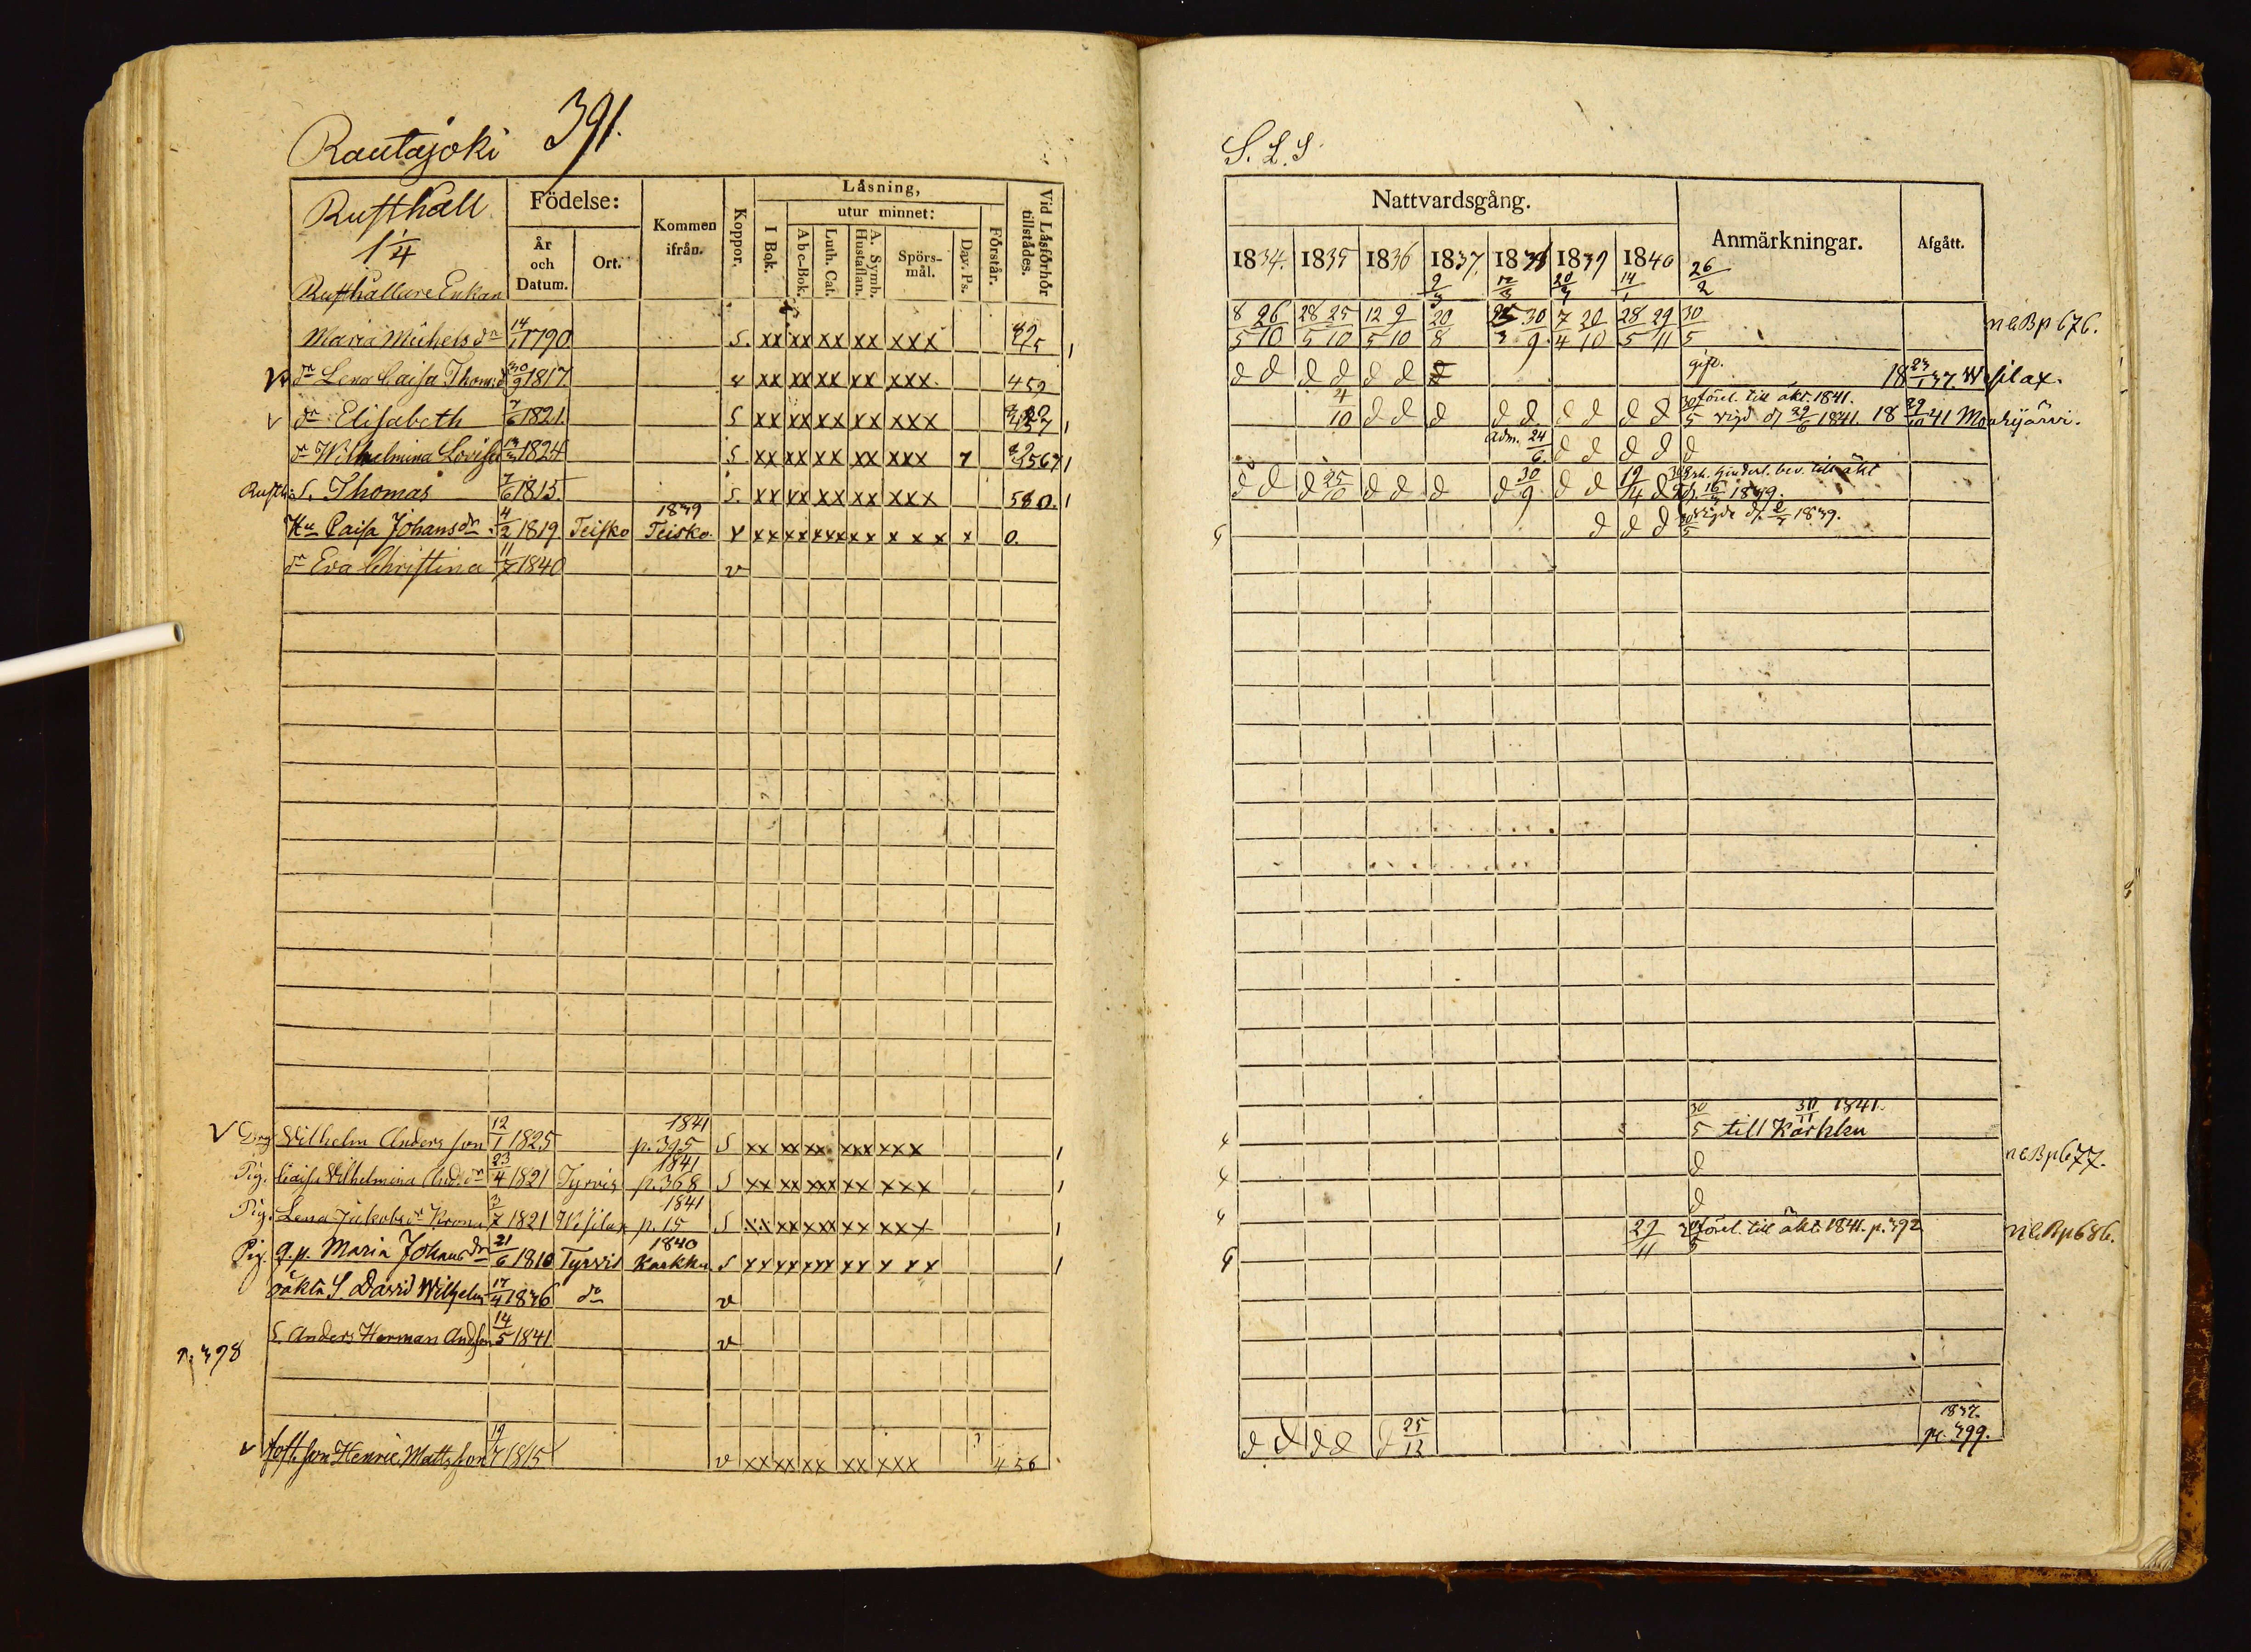 Rautajoki 391.
Rusthåll
1 1/4
Födelse:
År och Datum.
Ort.
Kommen ifrån.
Koppor.
Läsning,
I Bok.
utur minnet:
Abc-Bok.
Luth. Cat.
A. Symb. Hustaflan.
Spörs-mål.
Dav. Ps.
Förstår.
Vid Läsförhör tillstädes.
Rusthållare Enkan
Maria Michelsdr 14/11 1790 S. xx xx xx xx xxx
dr Lena Caisa Thomsd 30/9 1817 v xx xx xx xx xxx 459
dr Elisabeth 7/6 1821. S xx xx xx xx xxx
dr Wilhelmina Lovisa 1824 S xx xx xx xx xxx 7
Rusth: S. Thomas 7/6 1815. S. xx xx xx xx xxx 580.
Hu Caisa Johansdr 4/2 1819 Teisko 1839 Teisko. v xx xx xxx xx x x x x 0.
dr Eva Christina 11/7 1840 v
Drg Wilhelm Andersson 12/1 1825 1841 p. 395 S xx xx xx xxx xxx
Pig. Caisa Wilhelmina And.dr 23/4 1821 Tyrvis 1841 p. 368 S xx xx xxx xx xxx
Pig. Lena Jakobsdr Krona 3/7 1821 Wesilax 1841 p. 15 S xx xx xxx xx xxx
Pig q.p. Maria Johansdr 21/6 1810 Tyrvis 1840 Karkku S xx xx xxx xx x x x
oäkta S. David Wilhelm 17/4 1836 do v
S. Anders Herman Andson 14/5 1841 v
p. 398
Henric Mattsson 19/7 1815 v xx xx xx xx xxx 456
S. L. S.
Nattvardsgång.
1834. 1835 1836 1837. 1838 1839 1840
Anmärkningar.
Afgått.
9/3 20/3 14/1 26/2
8/5 26/10 28/5 25/10 12/5 9/10 20/8 30/9 7/4 20/10 28/5 29/11 30/5 n.l.B p 676.
d d d d d d d gift. 18 23/1 37. Wesilax.
4/10 d d d d d d d d d 30/5 förel. till äkt. 1841. vigd d 29/6 1841. 18 29/10 41 Mouhijärvi.
adm. 24/6. d d d d d
d d d 25/10 d d d d 30/9 d d 19/4 d bev. till äkt d. 16/2 1839.
d d d 30/5 vigde d. 2/3 1839.
30/5 till Karkku 30/11 1841.
d n.l.B p 677.
d
29/11 30/5 förel. till äkt. 1841. p. 392 n.l.B p 686.
d d d d d 25/12 1837. p. 399.